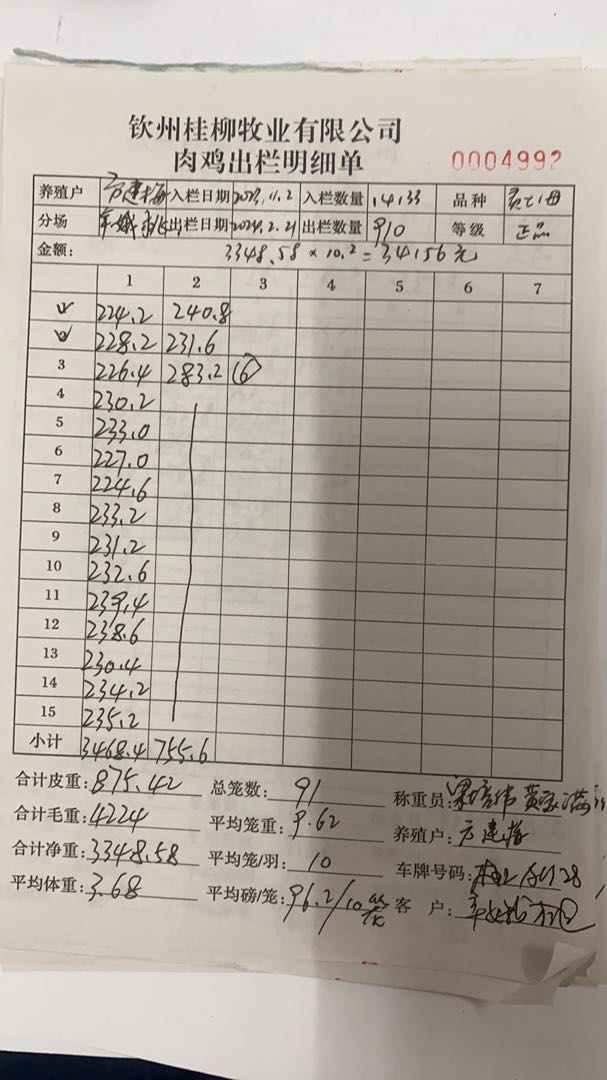 钦州桂柳牧业有限公司
肉鸡出栏明细单
0004992
养殖户 方建梅 入栏日期 2023.11.2 入栏数量 14133 品种
分场 出栏日期 2024.2.21 出栏数量 910 等级 正品
金额: 3348.58 × 10.2 = 34156元
1 2 3 4 5 6 7
1 224.2 240.8
2 228.2 231.6
3 226.4 283.2 (6)
4 230.2
5 233.0
6 227.0
7 224.6
8 233.2
9 231.2
10 232.6
11 239.4
12 238.6
13 230.4
14 234.2
15 235.2
小计 3468.4 755.6
合计皮重: 875.42 总笼数: 91 称重员:
合计毛重: 4224 平均笼重: 9.62 养殖户: 方建梅
合计净重: 3348.58 平均笼/羽: 10 车牌号码:
平均体重: 3.68 平均磅/笼: 96.2/10 客 户: